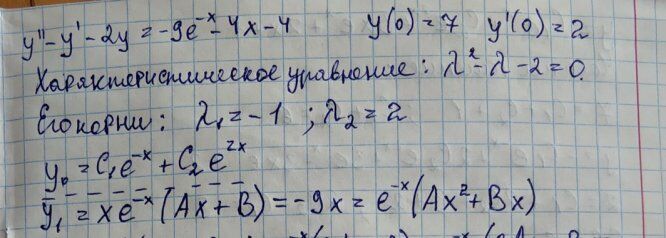 y'' - y' - 2y = -9e⁻ˣ - 4x - 4 y(0) = 7 y'(0) = 2
Характеристическое уравнение: λ² - λ - 2 = 0
Его корни: λ₁ = -1 ; λ₂ = 2
y₀ = C₁e⁻ˣ + C₂e²ˣ
y₁ = xe⁻ˣ(Ax + B) = -9x = e⁻ˣ(Ax² + Bx)